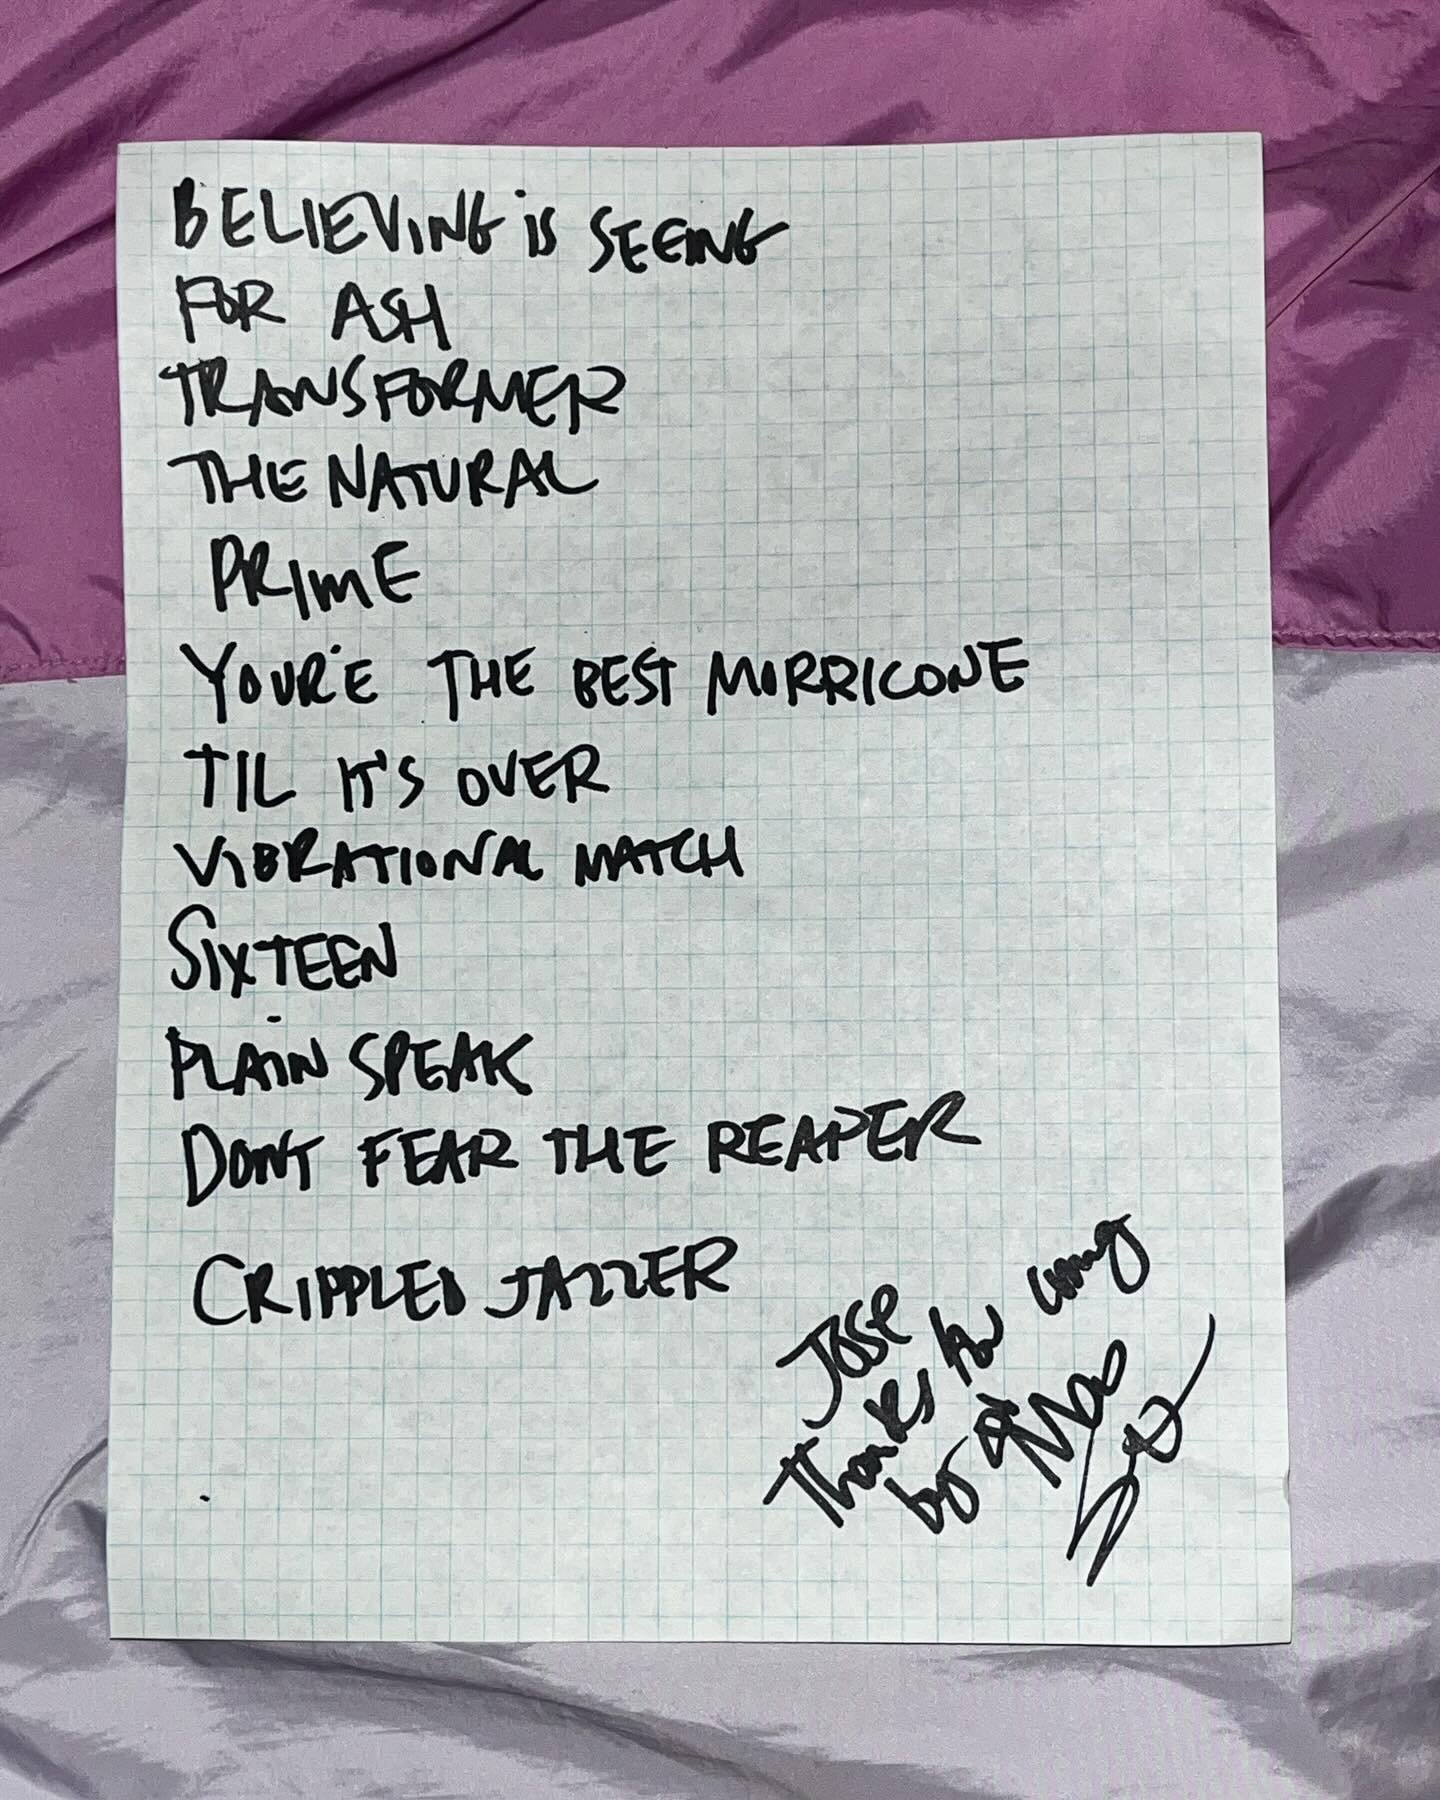 BELIEVING IS SEEING
FOR ASH
TRANSFORMER
THE NATURAL
PRIME
YOUR'E THE BEST MORRICONE
TIL IT'S OVER
VIBRATIONAL MATCH
SIXTEEN
PLAIN SPEAK
DONT FEAR THE REAPER
CRIPPLED JAZZER
Jose
Thanks for coming
by